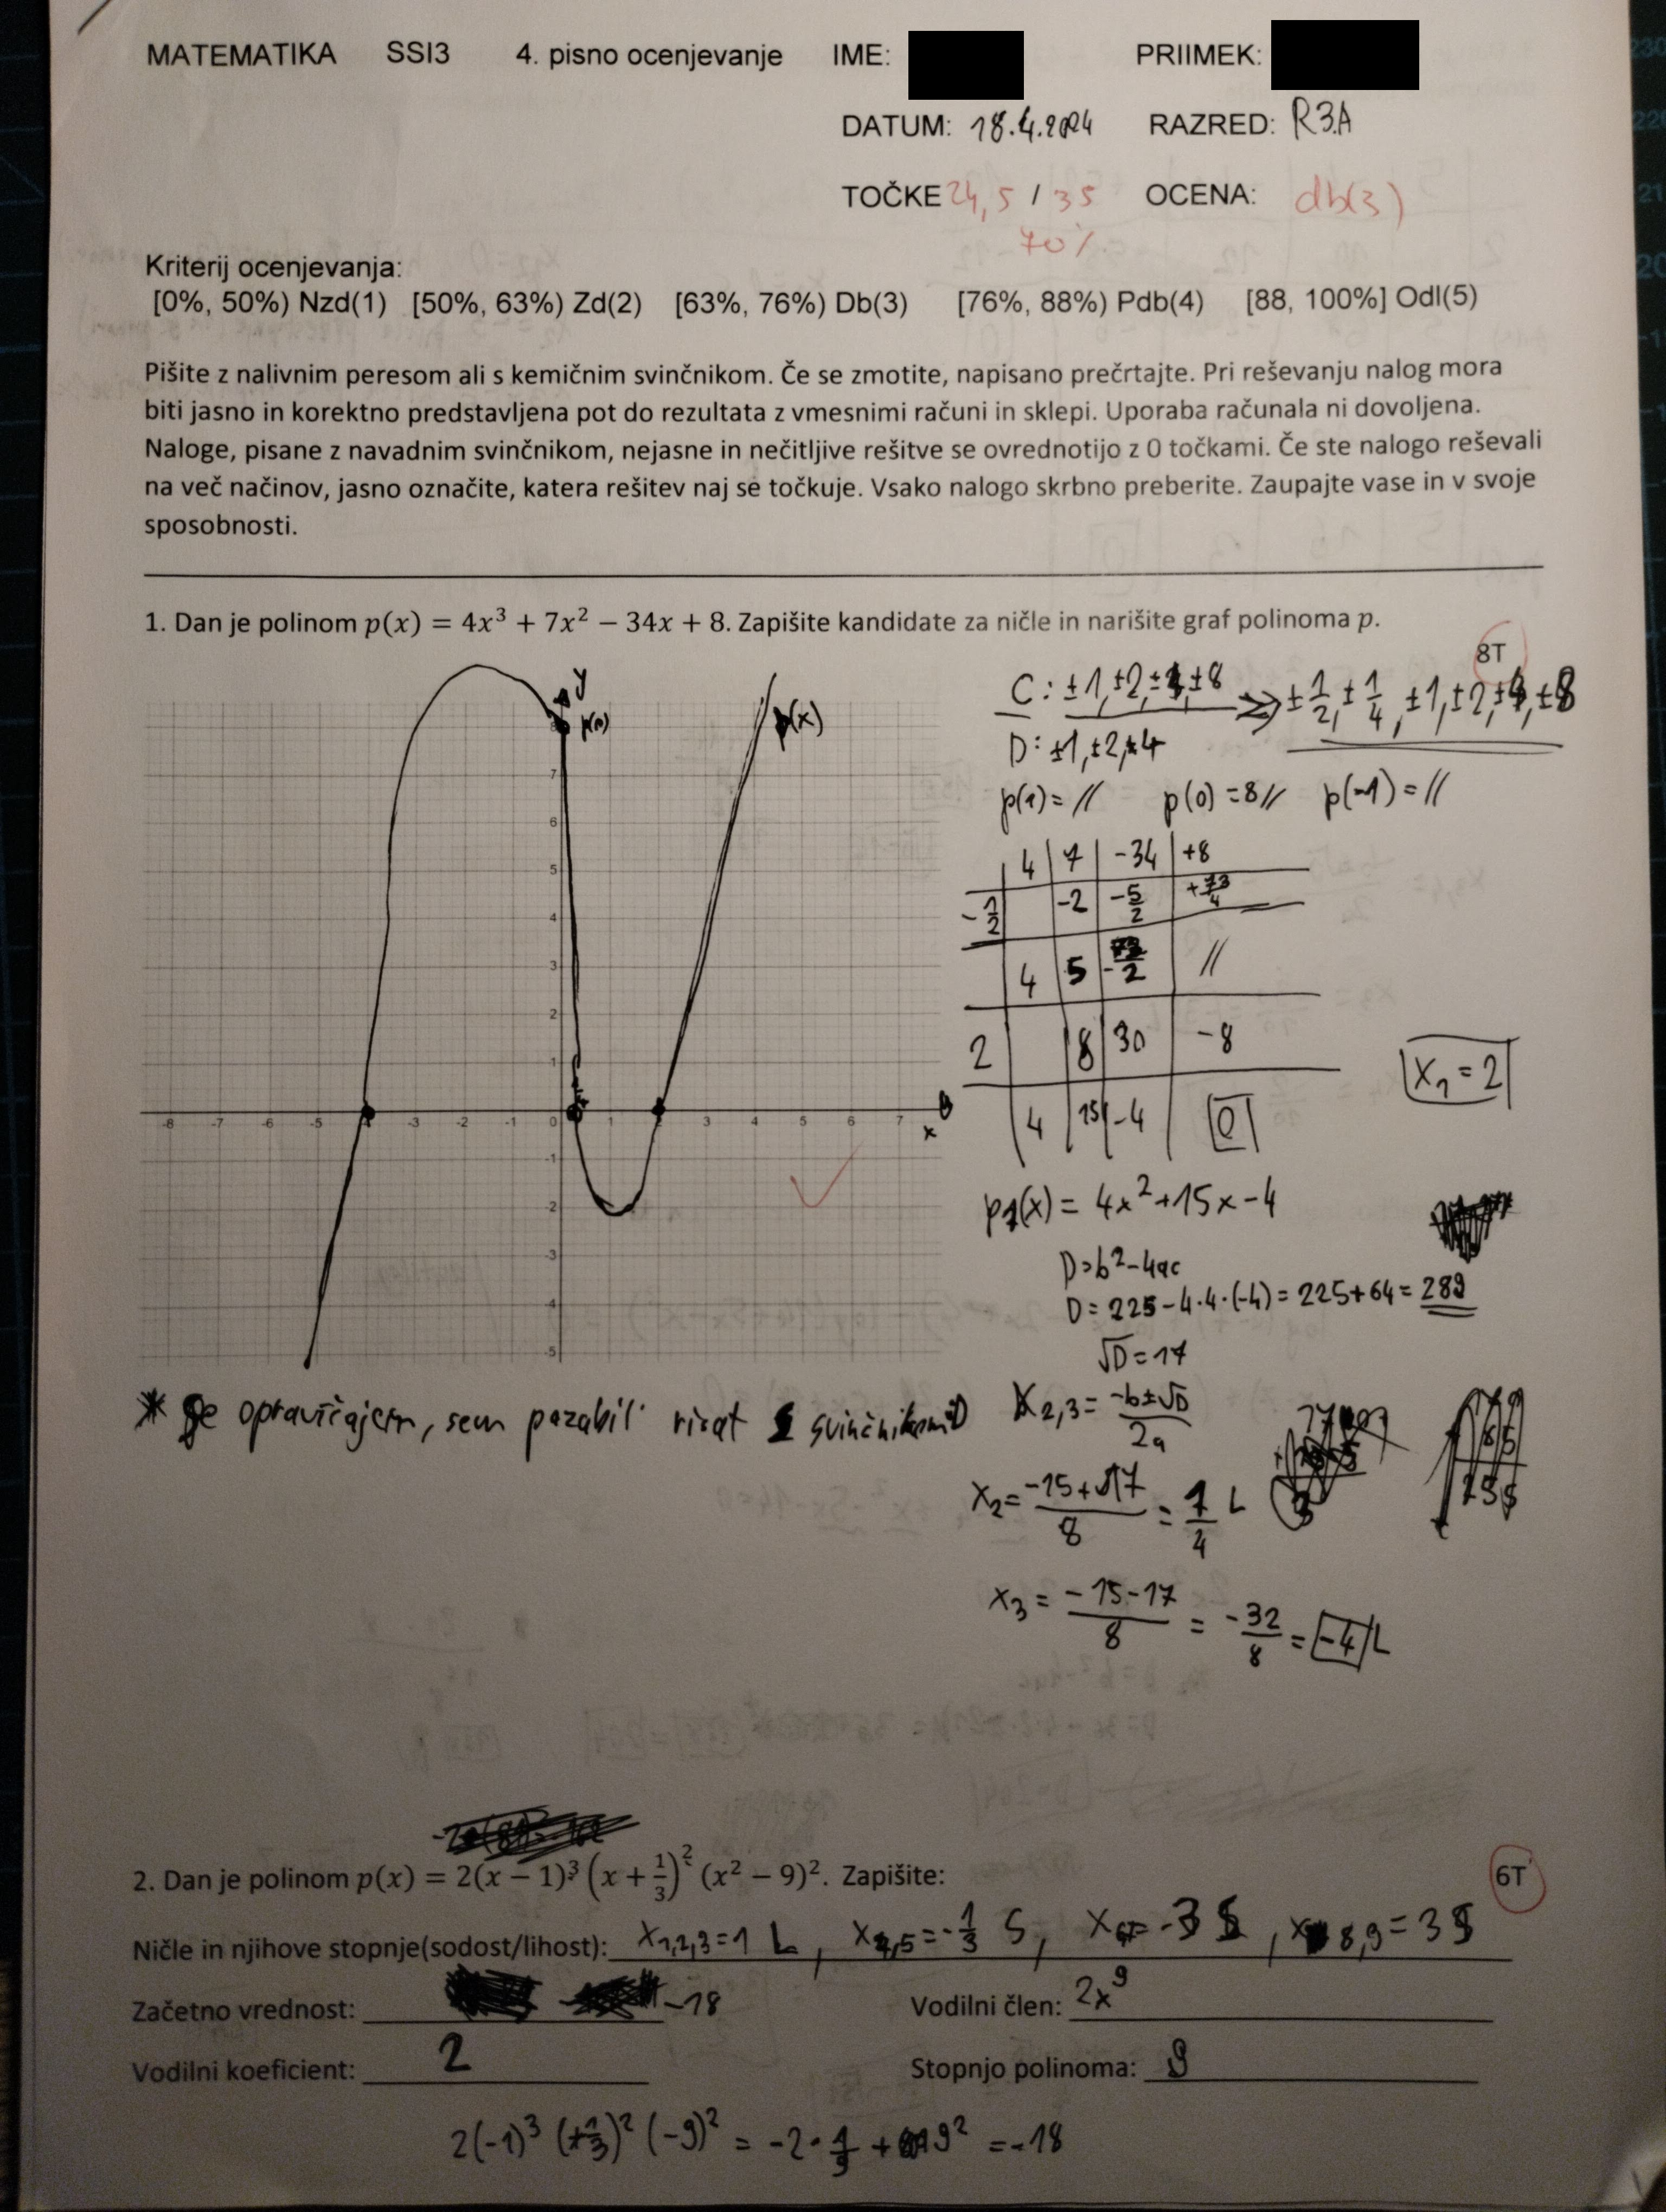 MATEMATIKA SSI3 4. pisno ocenjevanje IME: PRIIMEK:
DATUM: 18.4.2024 RAZRED: R3A
TOČKE 24,5 / 35 OCENA: db(3)
70%
Kriterij ocenjevanja:
[0%, 50%) Nzd(1) [50%, 63%) Zd(2) [63%, 76%) Db(3) [76%, 88%) Pdb(4) [88, 100%] Odl(5)
Pišite z nalivnim peresom ali s kemičnim svinčnikom. Če se zmotite, napisano prečrtajte. Pri reševanju nalog mora
biti jasno in korektno predstavljena pot do rezultata z vmesnimi računi in sklepi. Uporaba računala ni dovoljena.
Naloge, pisane z navadnim svinčnikom, nejasne in nečitljive rešitve se ovrednotijo z 0 točkami. Če ste nalogo reševali
na več načinov, jasno označite, katera rešitev naj se točkuje. Vsako nalogo skrbno preberite. Zaupajte vase in v svoje
sposobnosti.
1. Dan je polinom p(x) = 4x³ + 7x² − 34x + 8. Zapišite kandidate za ničle in narišite graf polinoma p.
8T
y
p(0)
p(x)
7
6
5
4
3
2
1
-8 -7 -6 -5 -3 -2 -1 0 3 4 5 6 7 x
-1
-2
-3
-4
-5
C: ±1, ±2, ±4, ±8 => ±1/2, ±1/4, ±1, ±2, ±4, ±8
D: ±1, ±2, ±4
p(1) = // p(0) = 8 // p(-1) = //
4 7 -34 +8
-1/2 -2 -5/2 +73/4
4 5 -73/2 //
2 8 30 -8
4 15 -4 0
x₁ = 2
p₁(x) = 4x² + 15x - 4
D = b² - 4ac
D = 225 - 4·4·(-4) = 225 + 64 = 289
√D = 17
x₂,₃ = -b±√D / 2a
x₂ = -15 + 17 / 8 = 1/4 L
x₃ = -15-17 / 8 = -32/8 = -4 L
* Se opravičajem, sem pozabil risat s svinčnikom
2. Dan je polinom p(x) = 2(x − 1)³ (x + 1/3)² (x² − 9)². Zapišite:
6T
Ničle in njihove stopnje(sodost/lihost): x₁,₂,₃ = 1 L, x₄,₅ = -1/3 S, x₆,₇ = -3 S, x₈,₉ = 3 S
Začetno vrednost: -18 Vodilni člen: 2x⁹
Vodilni koeficient: 2 Stopnjo polinoma: 9
2(-1)³ (+1/3)² (-9)² = -2 · 1/9 + 9² = -18